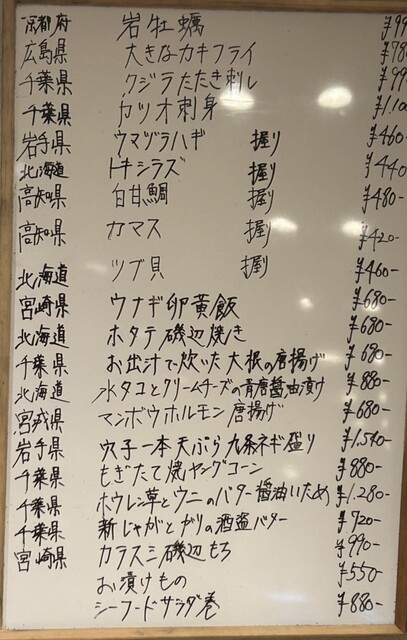 京都府 岩牡蠣 ¥99
広島県 大きなカキフライ ¥78
千葉県 クジラたたき刺し ¥99
千葉県 カツオ刺身 ¥1,10
岩手県 ウマヅラハギ 握り ¥460-
北海道 トキシラズ 握り ¥440
高知県 白甘鯛 握り ¥480-
高知県 カマス 握り ¥420-
北海道 ツブ貝 握り ¥460-
宮崎県 ウナギ卵黄飯 ¥680-
北海道 ホタテ磯辺焼き ¥680-
千葉県 お出汁で炊いた大根の唐揚げ ¥680-
北海道 水タコとクリームチーズの青唐醤油漬け ¥880-
宮城県 マンボウホルモン唐揚げ ¥680-
岩手県 穴子一本天ぷら九条ネギ盛り ¥1,540-
千葉県 もぎたて焼ヤングコーン ¥880-
千葉県 ホウレン草とウニのバター醤油いため ¥1,280-
千葉県 新じゃがとガリの酒盗バター ¥720-
宮崎県 カラスミ磯辺もち ¥990-
お漬けもの ¥550-
シーフードサラダ巻 ¥880-